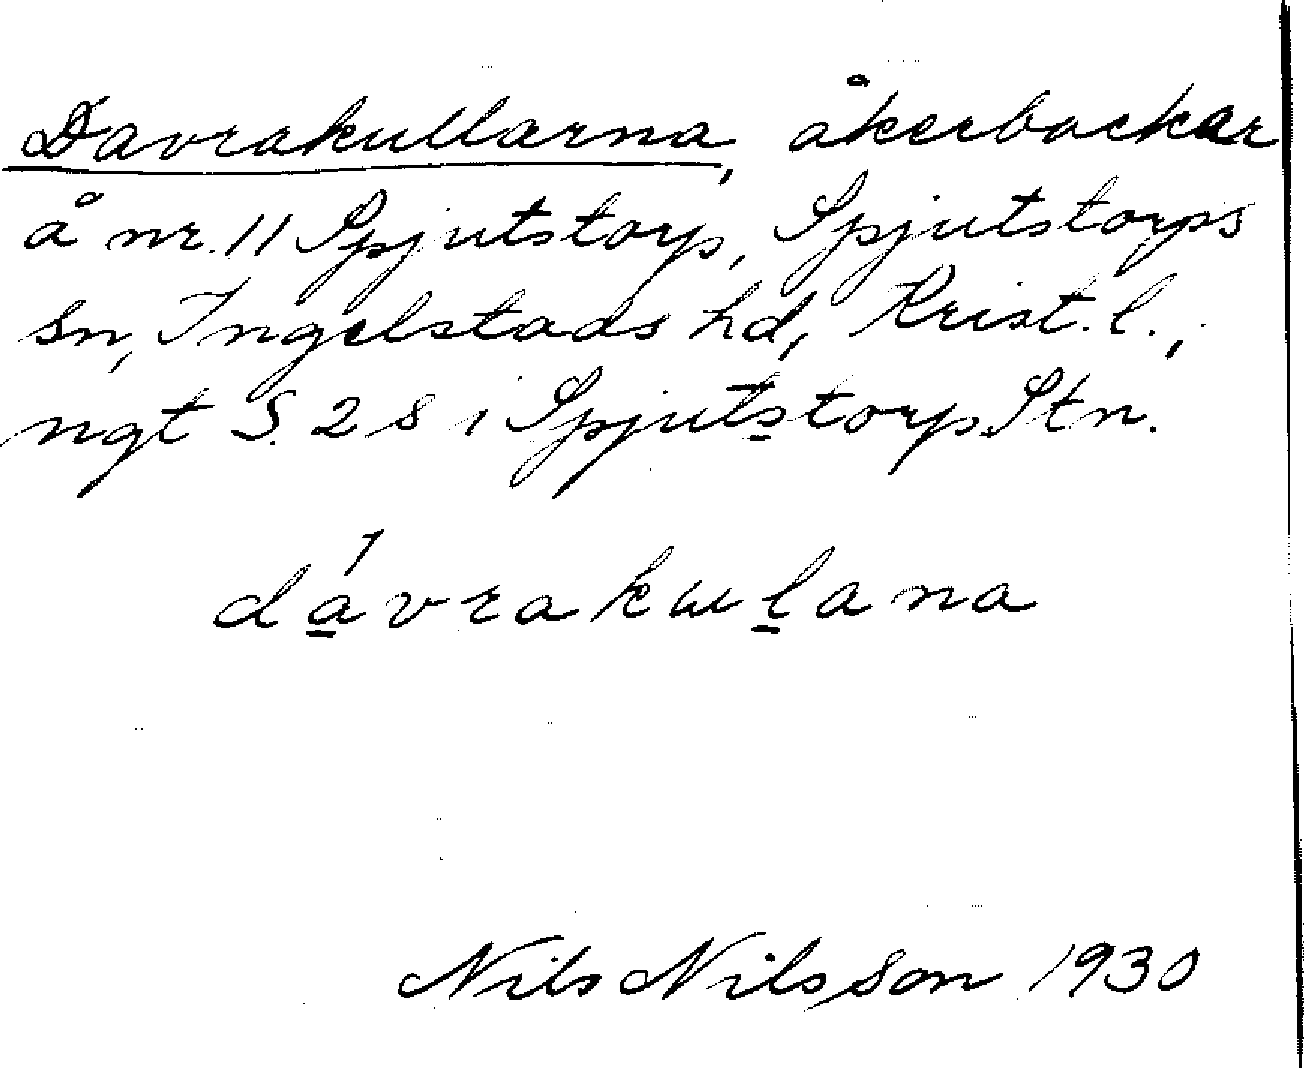 Davrakullarna, åkerbackar
å nr. 11 Spjutstorp, Spjutstorps
sn, Ingelstads hd, Krist. l.,
ngt S. 2 s i Spjutstorp Stn.
davrakɯlana
Nils Nilsson 1930